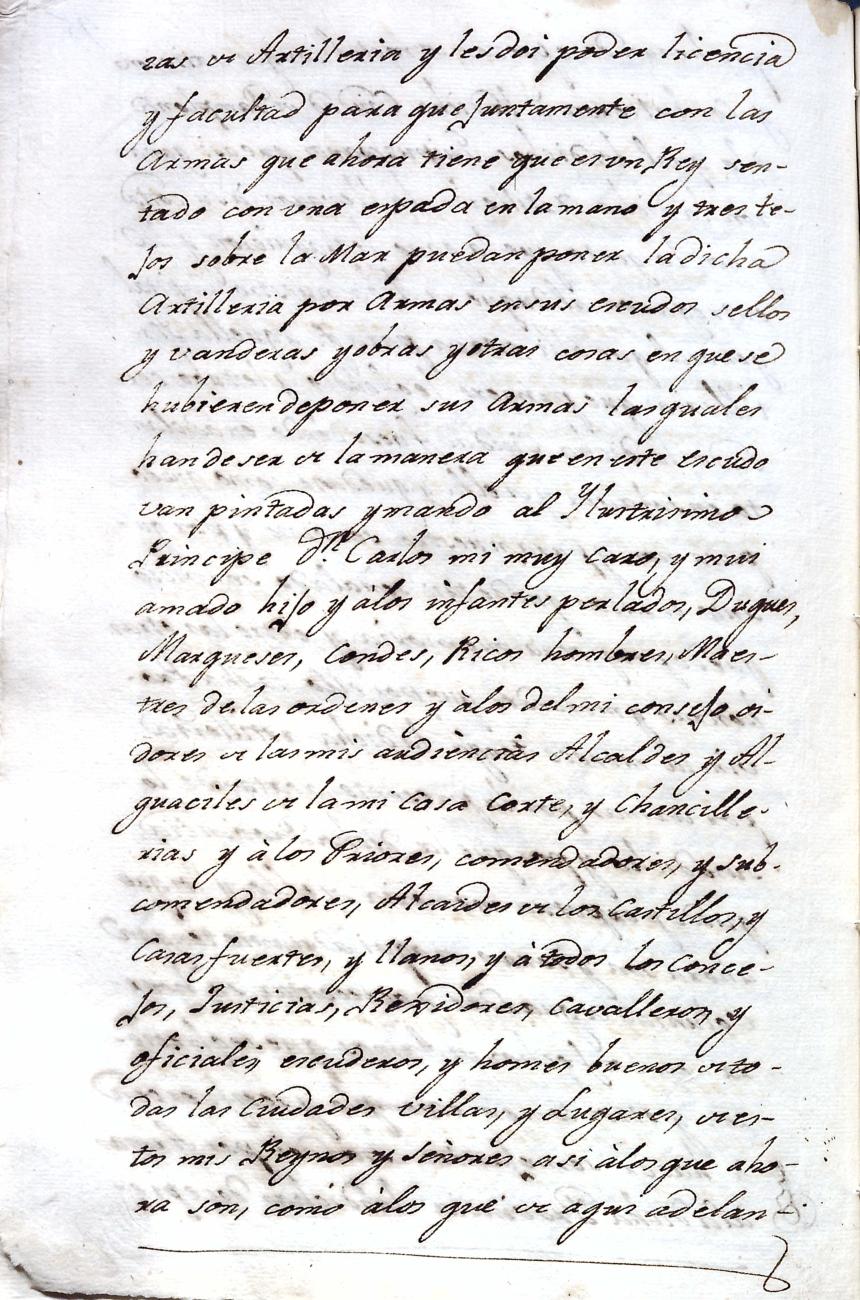 ras de Artilleria y les doi poder licencia
y facultad para que Juntamente con las
Armas que ahora tiene que es vn Rey sen-
tado con vna espada en la mano y tres te-
Jos sobre la Mar puedan poner la dicha
Artilleria por Armas en sus escudos sellos
y vanderas y obras y otras cosas en que se
hubieren de poner sus Armas las quales
han de ser de la manera que en este escudo
van pintadas y mando al Ylustrisimo
Principe Dn. Carlos mi muy caro, y mui
amado hiJo y à los infantes perlados, Duques,
Marqueses, Condes, Ricos hombres, Maes-
tres de las ordenes y à los del mi conseJo oi-
dores de las mis audiencias Alcaldes y Al-
guaciles de la mi Casa Corte, y Chancille-
rias y à los Priores, comendadores, y sub-
comendadores, Alcaides de los Castillos, y
Casas fuertes, y llanos, y à todos los Conce-
Jos, Justicias, Rexidores, Cavalleros, y
oficiales, escuderos, y homes buenos de to-
das las Ciudades villas, y Lugares, de es-
tos mis Reynos y señores asi à los que aho-
ra son, como à los que de aqui adelan-